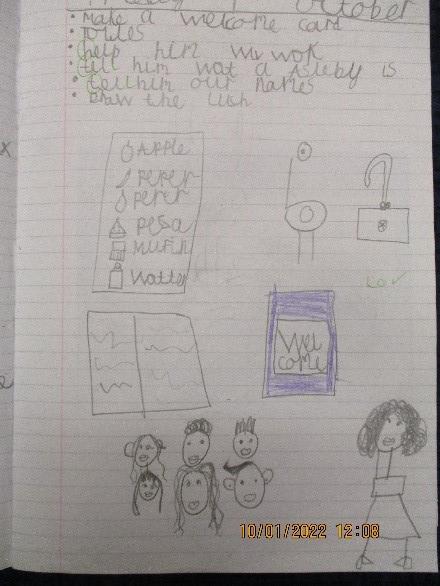 October
• Make a welcome card
• toiles
• help him wv wok
• till him wat a Asleby is
• tellhim our names
• Draw the lush
APPle
PePer
PePer
Pesa
Mufin
Watter
Wel
come
10/01/2022 12:08